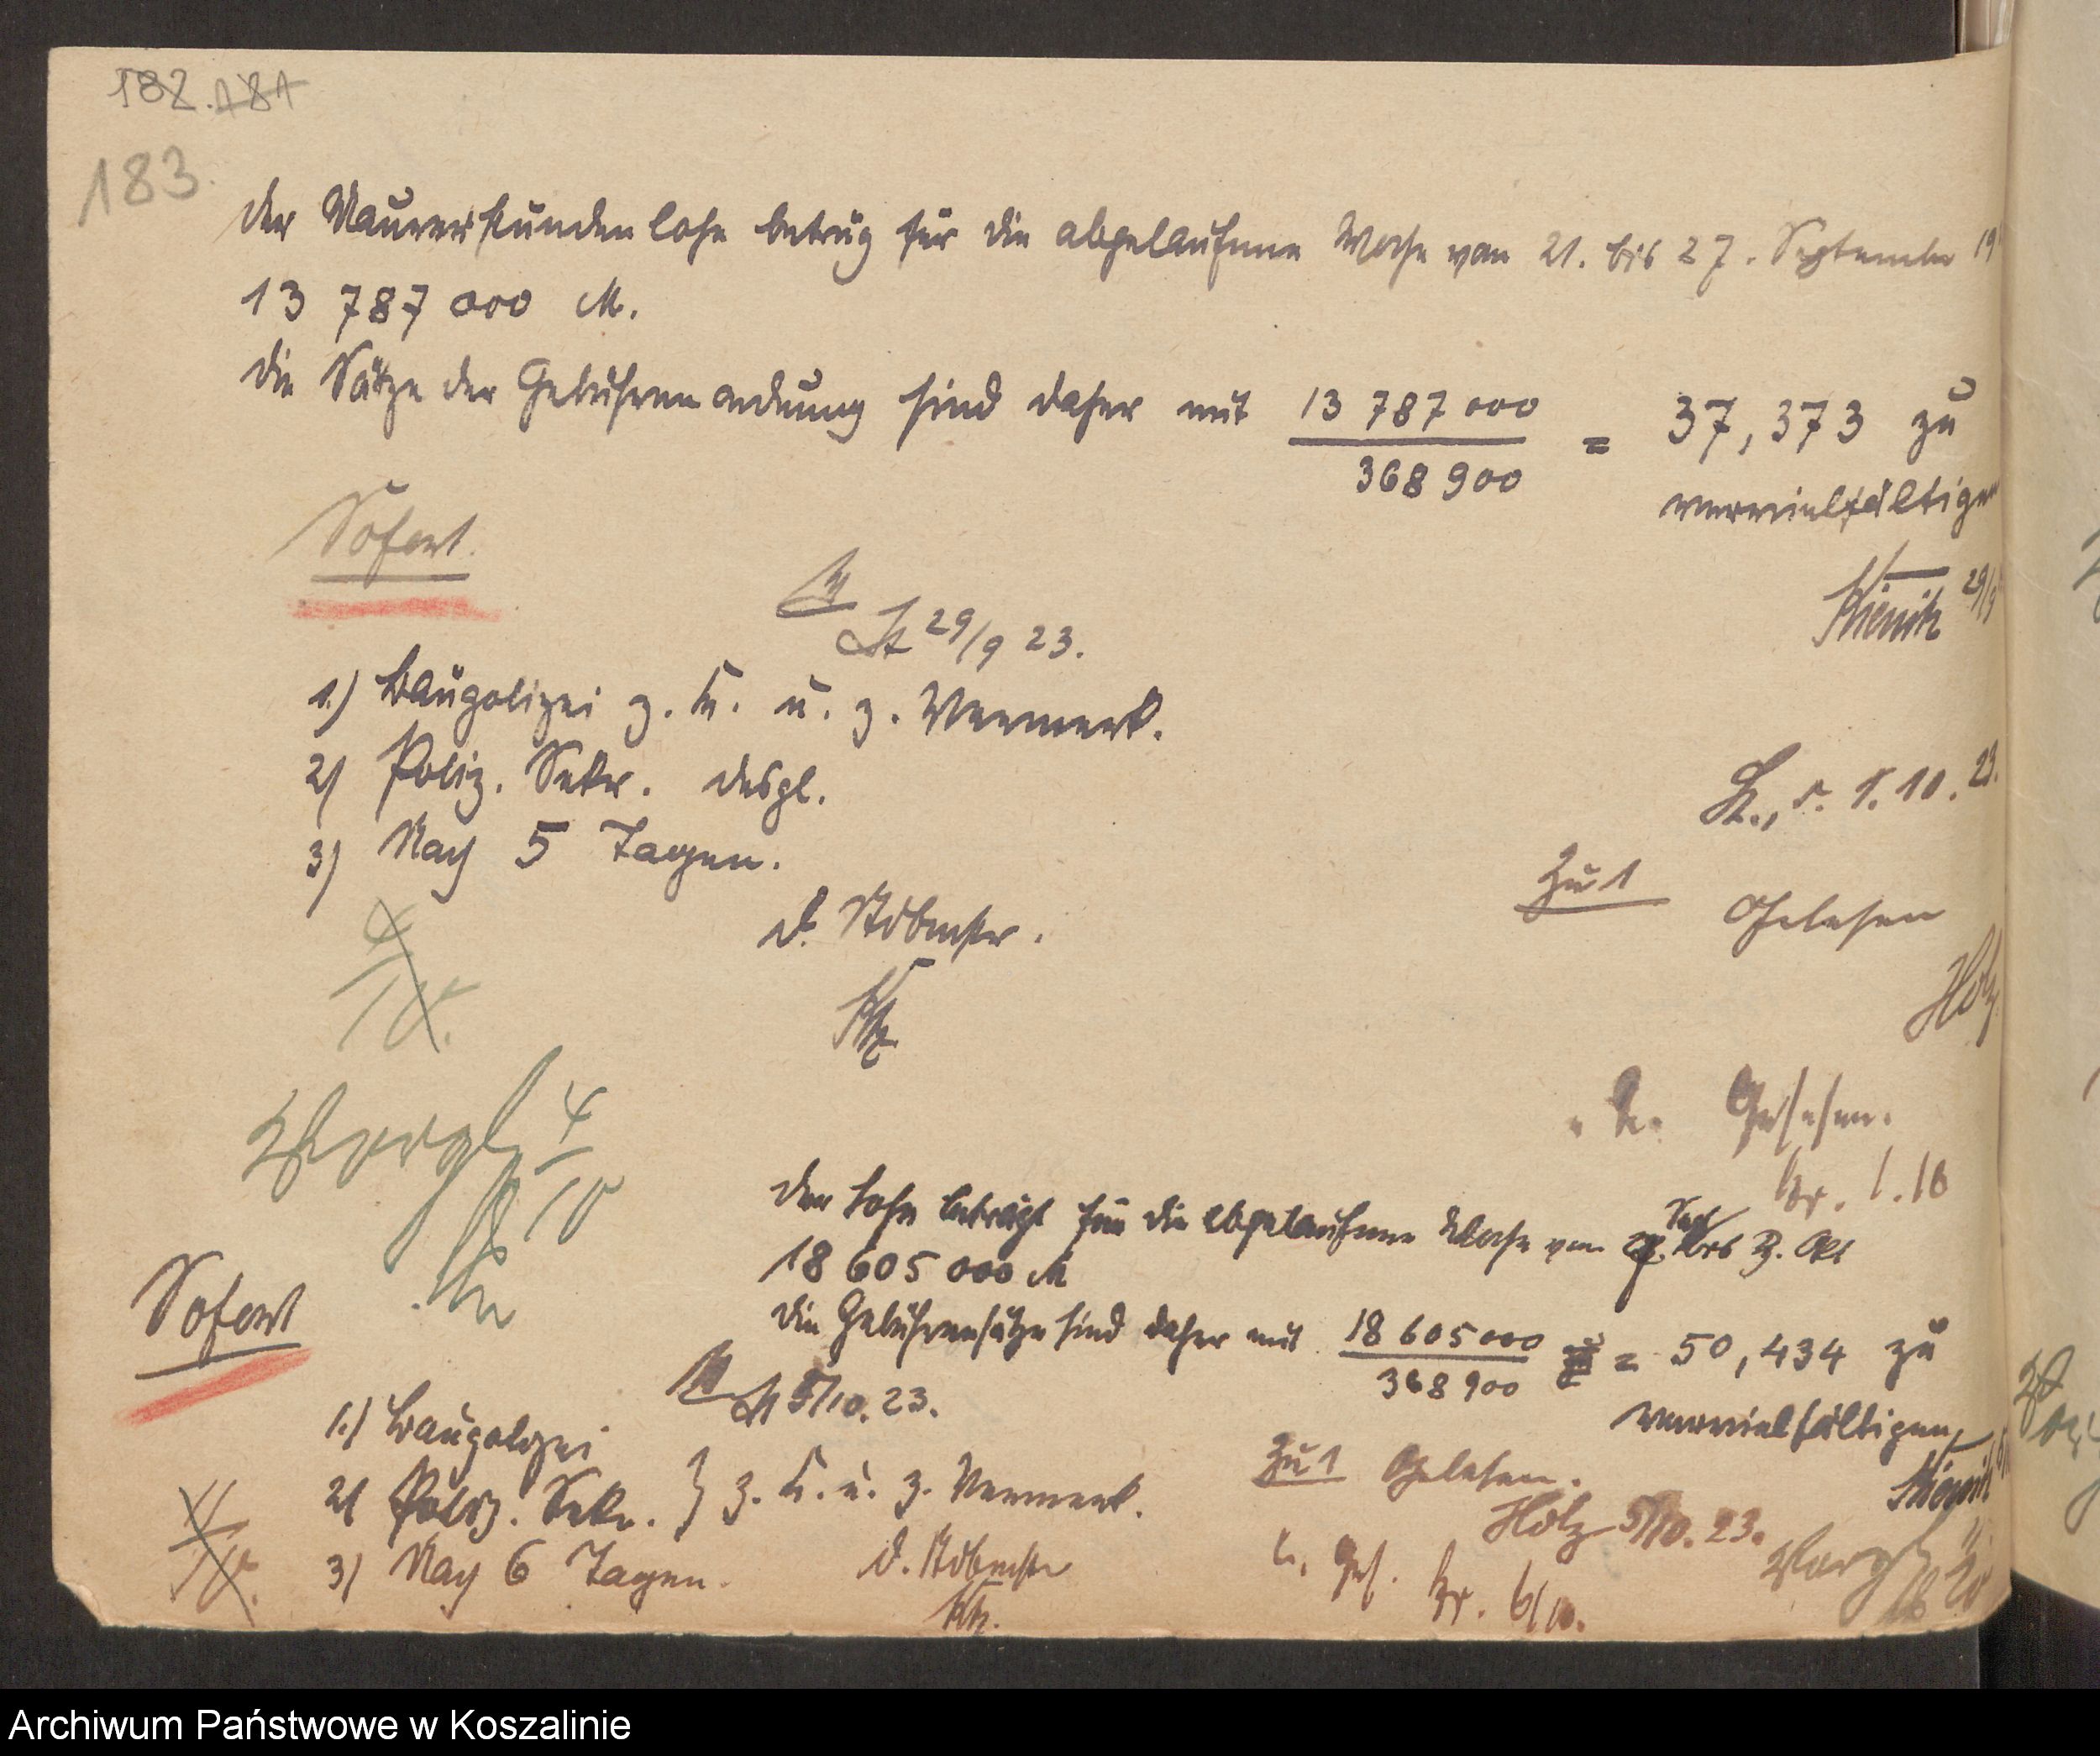 182. 181
183.
Der Maurerstundenlohn betrug für die abgelaufene Woche vom 21. bis 27. September 19
13 787 000 M.
Die Sätze der Gebührenordnung sind daher mit 13 787 000 / 368 900 = 37,373 zu
vervielfältigen
Sofort.
29/9
St 29/9 23.
1.) Baupolizei z. K. u. z. Vermerk.
2) Poliz. Sekr. desgl.
3) Nach 5 Tagen.
1. 10. 23.
Zu 1 Gelesen
D. Stdbmstr.
Holz
4/10.
" 2. Gesehen.
Vorgl. 4/10
Kr. 1.10
Der Lohn beträgt für die abgelaufene Woche vom 27. Sept bis 3. Okt
18 605 000 M
Die Gebührensätze sind daher mit 18 605 000 / 368 900 = 50,434 zu
vervielfältigen
Sofort
St 5/10. 23.
1.) Baupolizei
2) Poliz. Sekr. } z. K. u. z. Vermerk.
3) Nach 6 Tagen.
D. Stdbmstr
Zu 1 Gelesen.
Holz 5/10. 23.
2. Ges. Kr. 6/10.
11/10.
Vorgl.
Archiwum Państwowe w Koszalinie